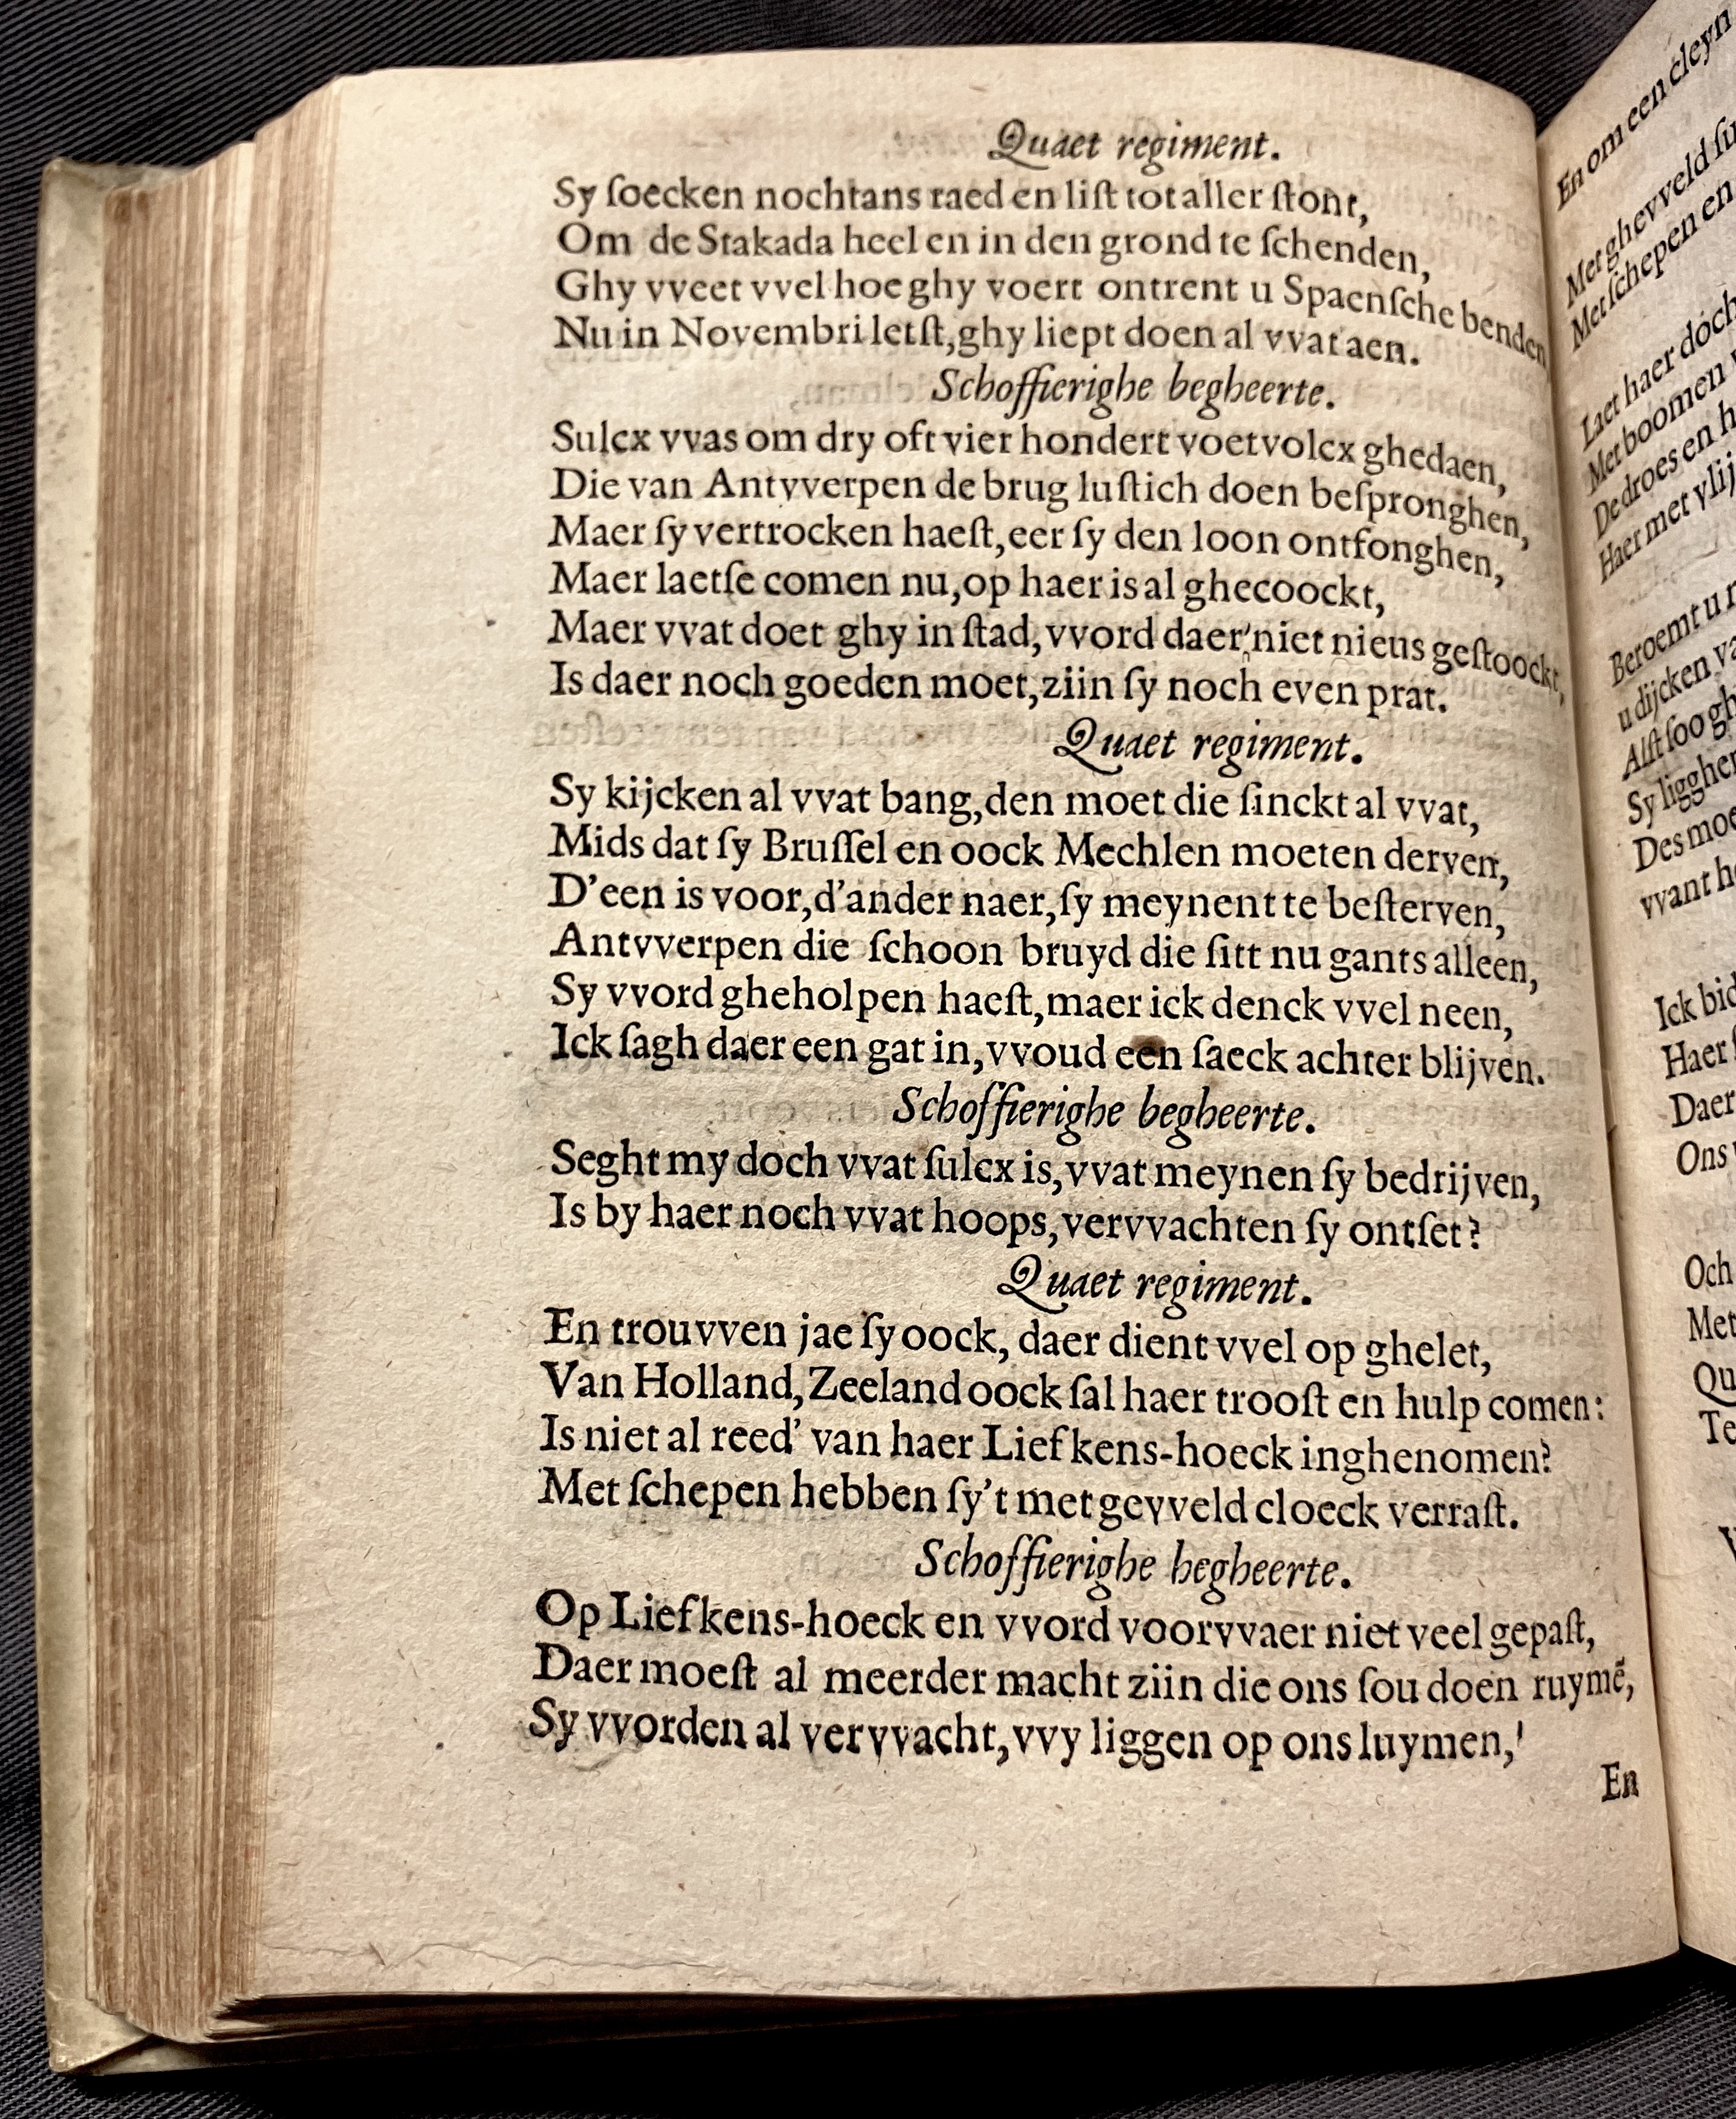 Quaet regiment.
Sy ſoecken nochtans raed en liſt tot aller ſtont,
Om de Stakada heel en in den grond te ſchenden,
Ghy vveet vvel hoe ghy voert ontrent u Spaenſche benden
Nu in Novembri letſt, ghy liept doen al vvat aen.
Schoffierighe begheerte.
Sulcx vvas om dry oft vier hondert voetvolcx ghedaen,
Die van Antvverpen de brug luſtich doen beſpronghen,
Maer ſy vertrocken haeſt, eer ſy den loon ontfonghen,
Maer laetſe comen nu, op haer is al ghecoockt,
Maer vvat doet ghy in ſtad, vvord daer niet nieus geſtoockt,
Is daer noch goeden moet, ziin ſy noch even prat.
Quaet regiment.
Sy kijcken al vvat bang, den moet die ſinckt al vvat,
Mids dat ſy Bruſſel en oock Mechlen moeten derven,
D'een is voor, d'ander naer, ſy meynent te beſterven,
Antvverpen die ſchoon bruyd die ſitt nu gants alleen,
Sy vvord gheholpen haeſt, maer ick denck vvel neen,
Ick ſagh daer een gat in, vvoud een ſaeck achter blijven.
Schoffierighe begheerte.
Seght my doch vvat ſulcx is, vvat meynen ſy bedrijven,
Is by haer noch vvat hoops, vervvachten ſy ontſet?
Quaet regiment.
En trouvven jae ſy oock, daer dient vvel op ghelet,
Van Holland, Zeeland oock ſal haer trooſt en hulp comen:
Is niet al reed' van haer Liefkens-hoeck inghenomen?
Met ſchepen hebben ſy't met gevveld cloeck verraſt.
Schoffierighe begheerte.
Op Liefkens-hoeck en vvord voorvvaer niet veel gepaſt,
Daer moeſt al meerder macht ziin die ons ſou doen ruymẽ,
Sy vvorden al vervvacht, vvy liggen op ons luymen,
En
En om een cleyn
Met ghevveld
Met ſchepen en
Laet haer doch
Met boomen
De droes en
Haer met
Beroemt u
u dijcken
Alſt ſoo
Sy
Des
vvant
Ick
Haer
Daer
Ons
Och
Met